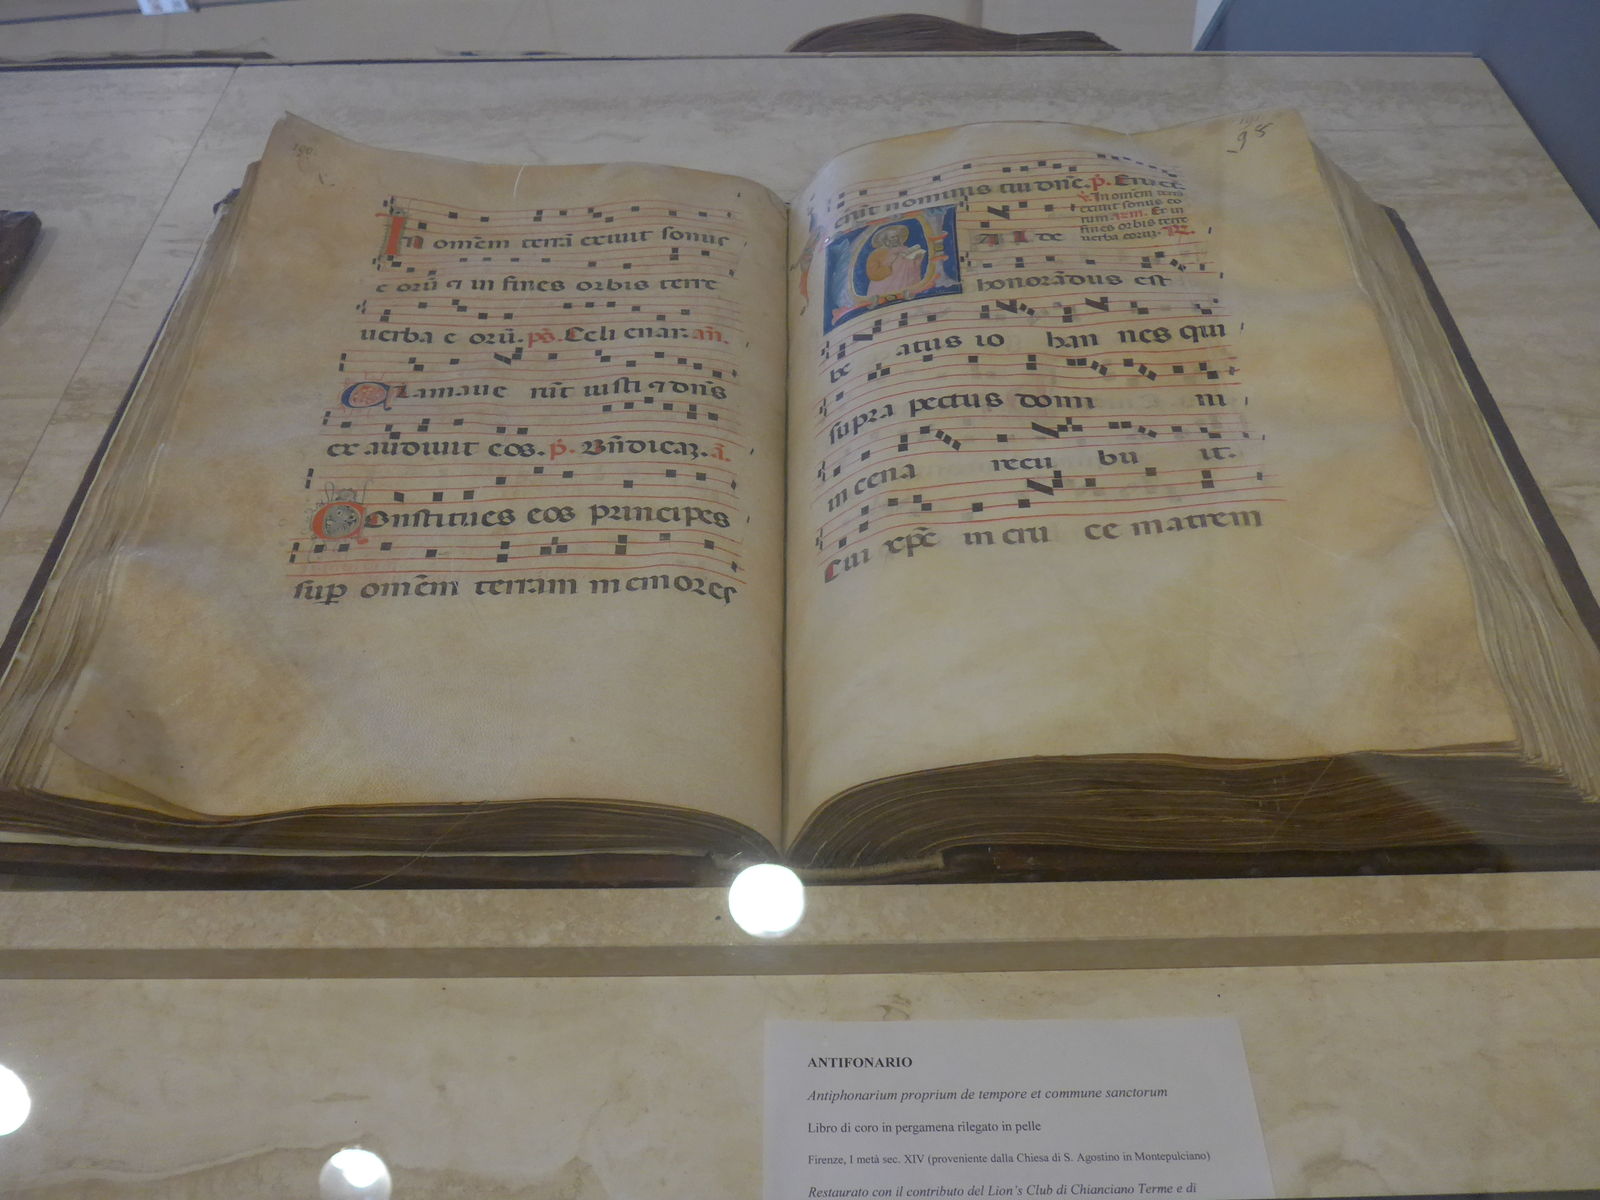 190
In omēm terrā exiuit sonus
e orū ⁊ in fines orbis terre
uerba e orū. pš. Celi enar. añ.
Clamaue rūt iusti ⁊ dn̄s
ex audiuit eos. p̄. Bn̄dicaꝫ. ā.
Constitues eos principes
sup omēm terram memores
98
erūt nominis tui dn̄e. p̄. Eructa
v̄. In omēm terrā
exiuit sonus eo
rum. Et in
fines orbis terre
uerba eorum. R̄.
Valde
honorādus est
be atus io han nes qui
supra pectus domi ni
in cena recu bu it.
Cui xp̄c in cru ce matrem
ANTIFONARIO
Antiphonarium proprium de tempore et commune sanctorum
Libro di coro in pergamena rilegato in pelle
Firenze, I metà sec. XIV (proveniente dalla Chiesa di S. Agostino in Montepulciano)
Restaurato con il contributo del Lion's Club di Chianciano Terme e di